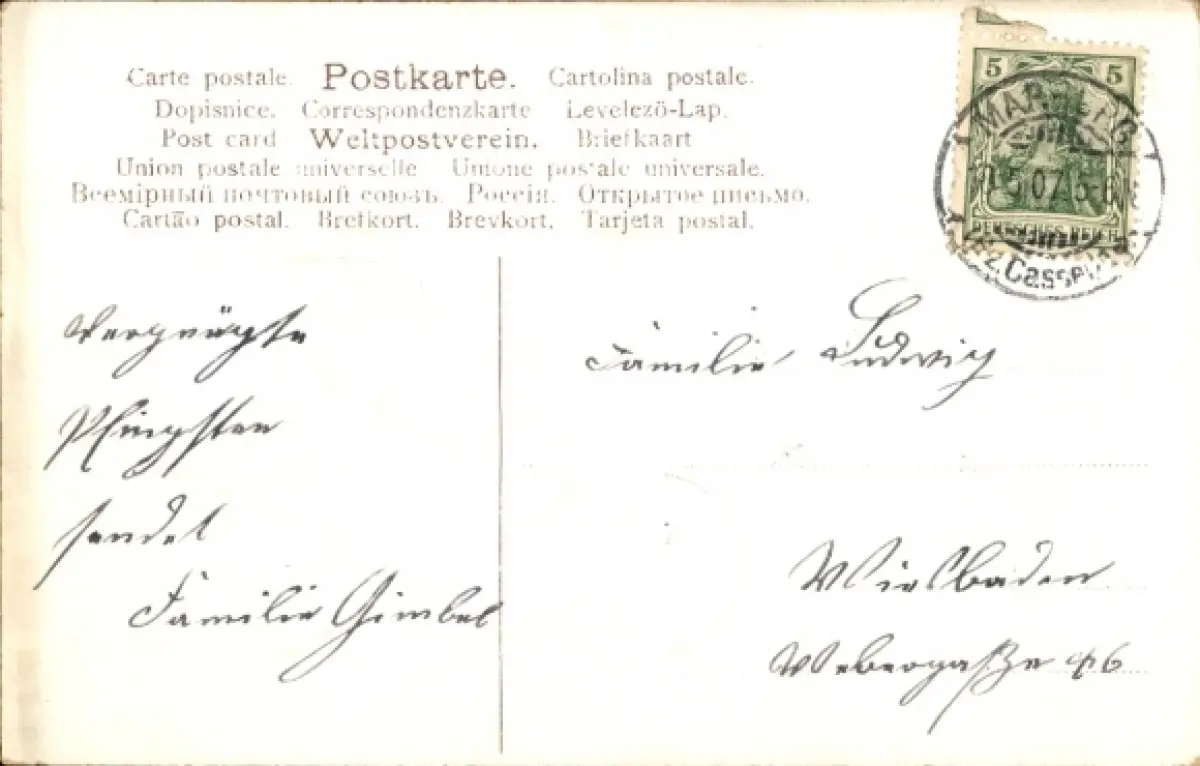 Carte postale. Postkarte. Cartolina postale.
Dopisnice. Correspondenzkarte Levelezö-Lap.
Post card Weltpostverein. Briefkaart
Union postale universelle Unione postale universale.
Всемірный почтовый союзъ. Россія. Открытое письмо.
Cartão postal. Brefkort. Brevkort. Tarjeta postal.
5 5
DEUTSCHES REICH
Cassel
Vergnügte
Pfingsten
sendet
Familie Gimbel
Familie Ludwig
Wiesbaden
Webergaße 46